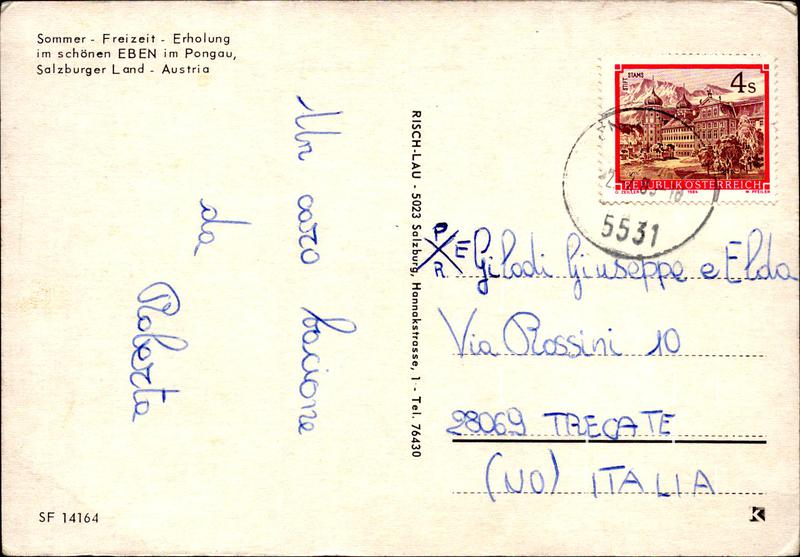 Sommer - Freizeit - Erholung
im schönen EBEN im Pongau,
Salzburger Land - Austria
Un caro bacione
da
Roberta
SF 14164
RISCH-LAU - 5023 Salzburg, Hannakstrasse, 1 - Tel. 76430
STIFT STAMS
4s
REPUBLIK ÖSTERREICH
1984
W. PFEILER
5531
PER Gilodi Giuseppe e Elda
Via Rossini 10
28069 TRECATE
(NO) ITALIA
K